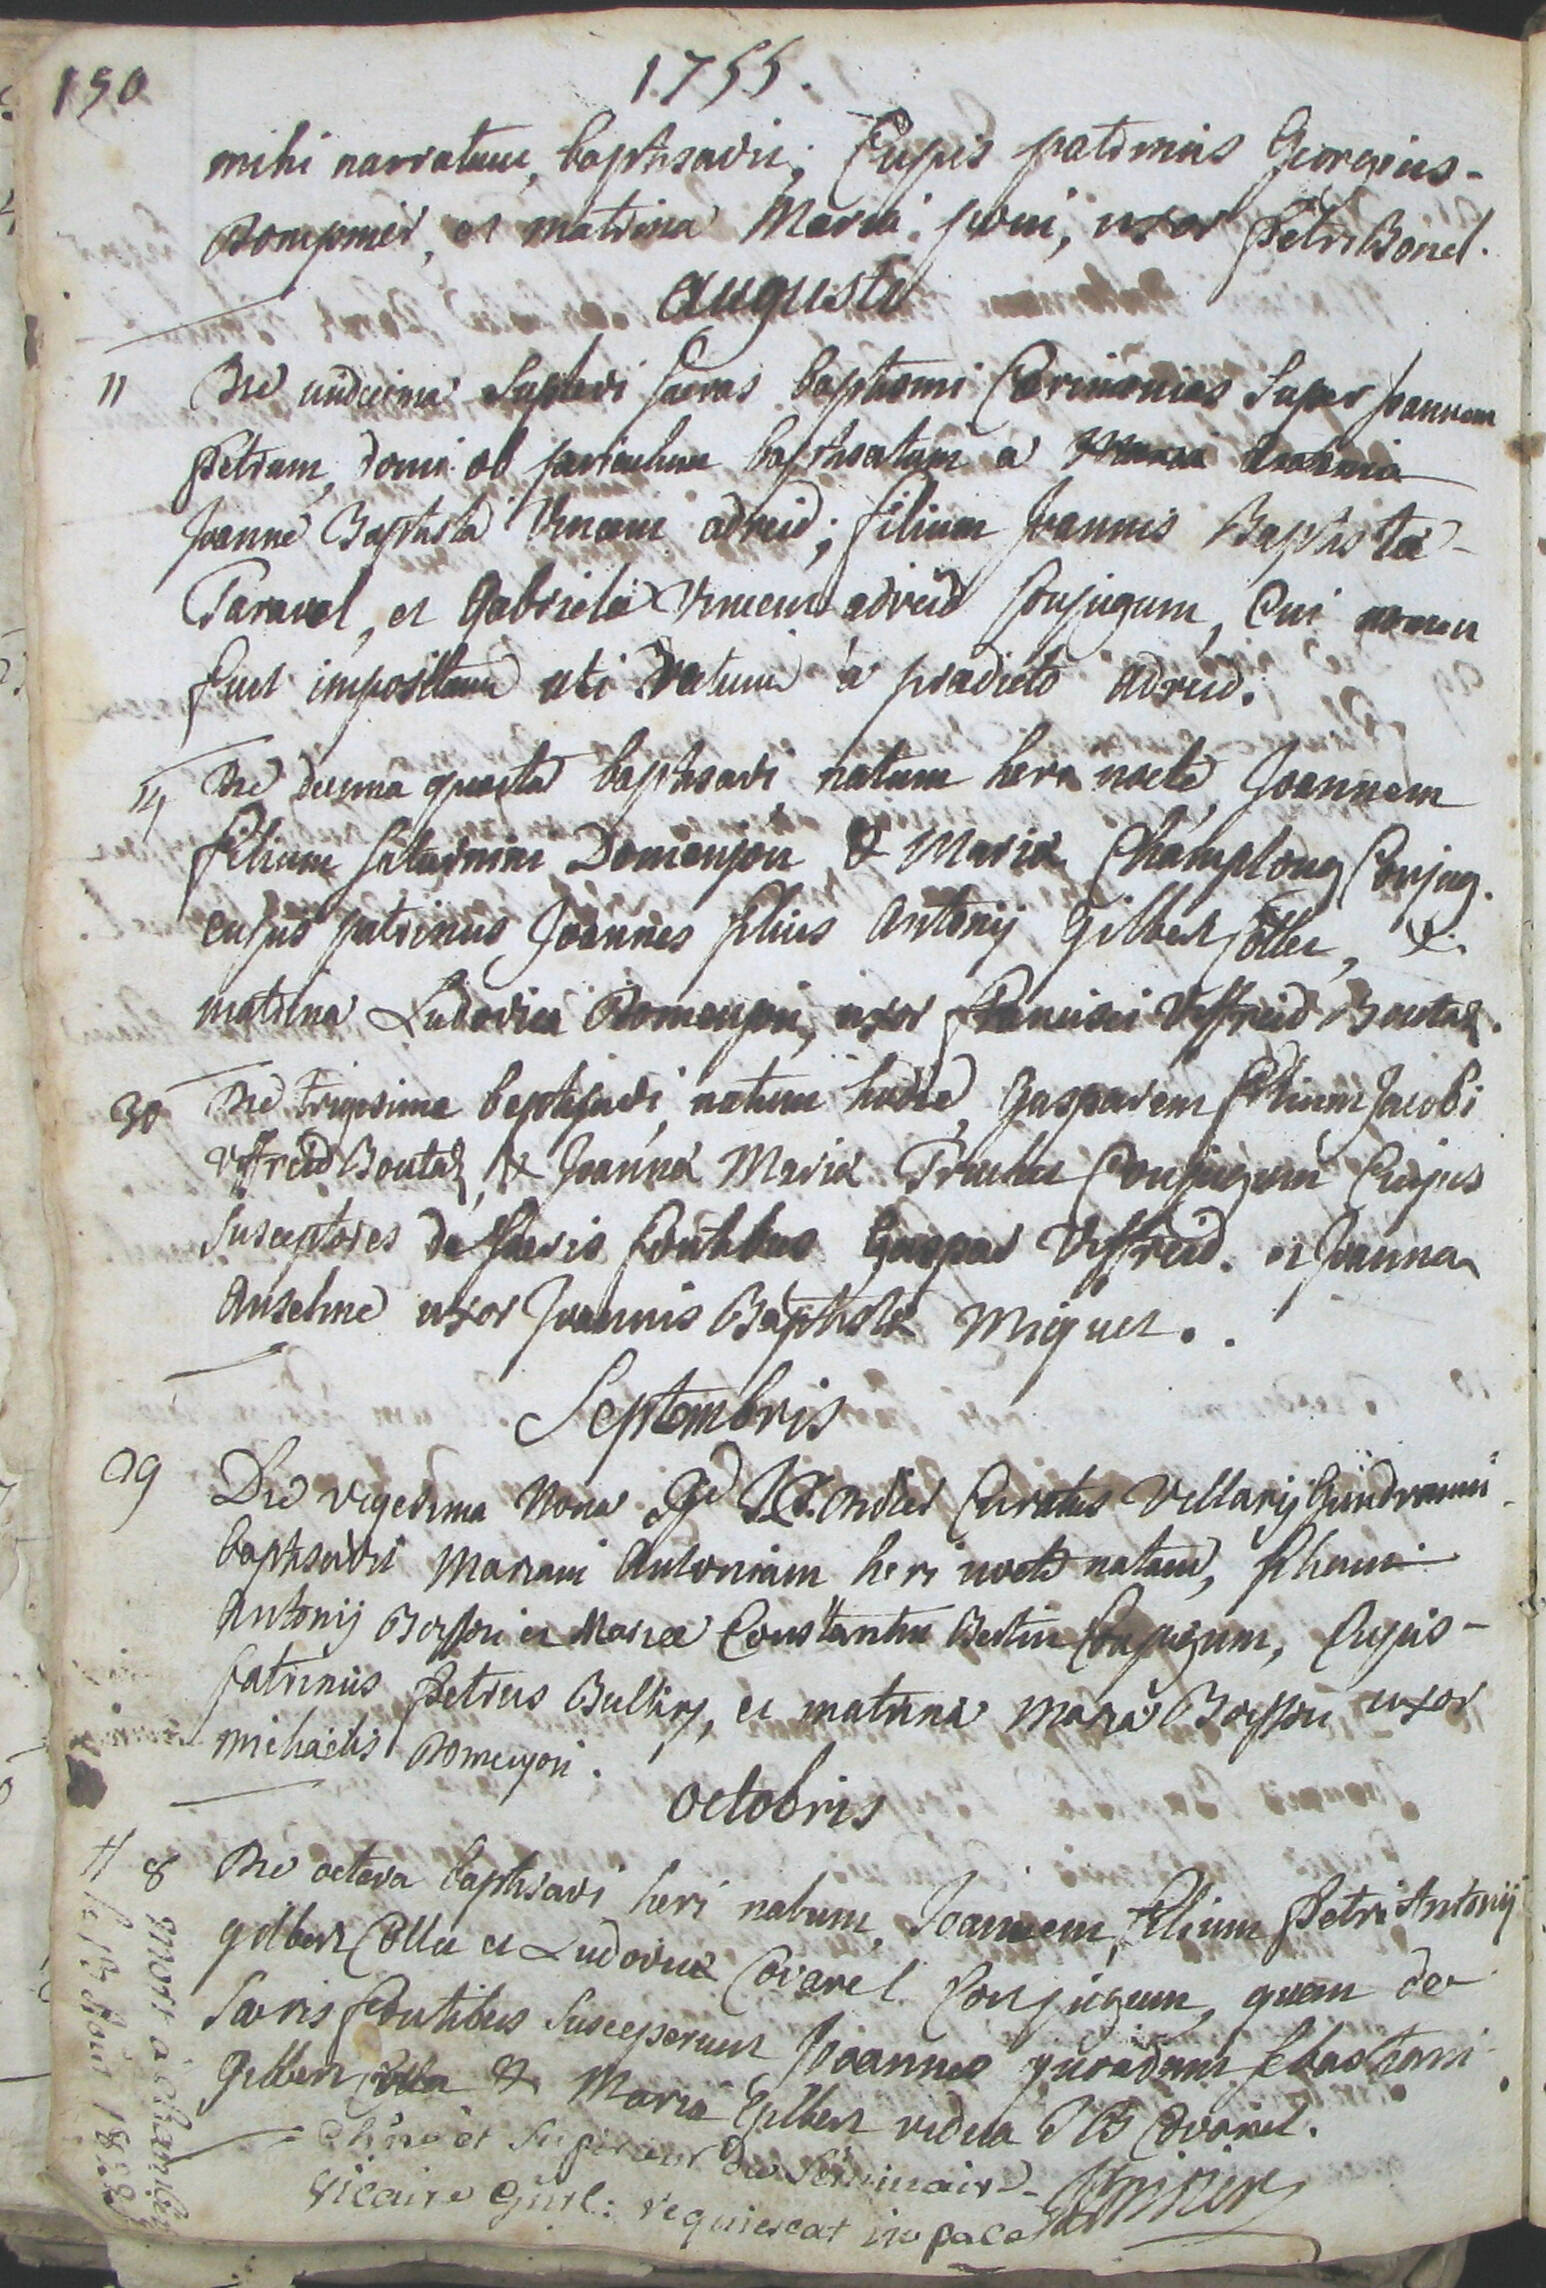 150
1755.
mihi narratum, baptisavi; Cujus patrinus Georgius-
Domprier, et matrina Maria uxor Petri Bonel.
augusti
11 Die undecima Suplevi sacras baptismi Cerimonias Super Joannem
Petrum, domi ob periculum baptisatum a
Joanne Baptista Vincent advreid; filium Joannis Baptistæ-
Taravel, et Gabrielæ Vincent advreid Conjugum, Cui nomen
fuit impositum uti datum à prædicto advreid.
14 Die decima quarta baptisavi natum heri nocte, Joannem
filium Saturnini Domenjon & Mariæ Champlong Conjug.
cujus patrinus Joannes filius Antonij Gilbert Collet, &
matrina Ludovica Domenjon, uxor Francisci Viffreid Boutaz.
30 Die trigesima baptisavi, natum hodie, Gasparem filium Jacobi
Viffreid Boutaz, & Joannæ Mariæ Truchet Conjugum Cujus
Susceptores de Sacris fontibus Gaspar Viffreid. et Joanna
Anselme uxor Joannis Baptistæ Miquet..
Septembris
29 Die vigesima Nona Ego Curatus Villarij Gundranni
baptisavi Mariam Antoniam heri nocte natam, filiam
Antonij Boisson et Mariæ Constantin Bertin Conjugum, Cujus-
patrinus Petrus Bulliot, et matrina Maria Boisson uxor
michaelis Domenjon.
octobris
8 Die octava baptisavi heri natum, Joannem, filium Petri Antonij
gilbert Collet et Ludovicæ Covarel Conjugum, quem de
Sacris fontibus Susceperunt Joannes quondam Sebastiani
Gilbert Collet & Maria Gilbert vidua JB Covarel.
# mort à chambery
le 18
chne et Superieur du Séminaire-
Vicaire Gnrl: requiescat in pace